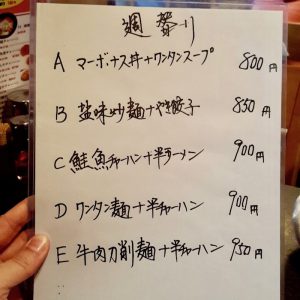 週替り
A マーボナス丼+ワンタンスープ 800円
B 塩味炒麺+やき餃子 850円
C 鮭魚チャーハン+半ラーメン 900円
D ワンタン麺+半チャーハン 900円
E 牛肉刀削麺+半チャーハン 950円